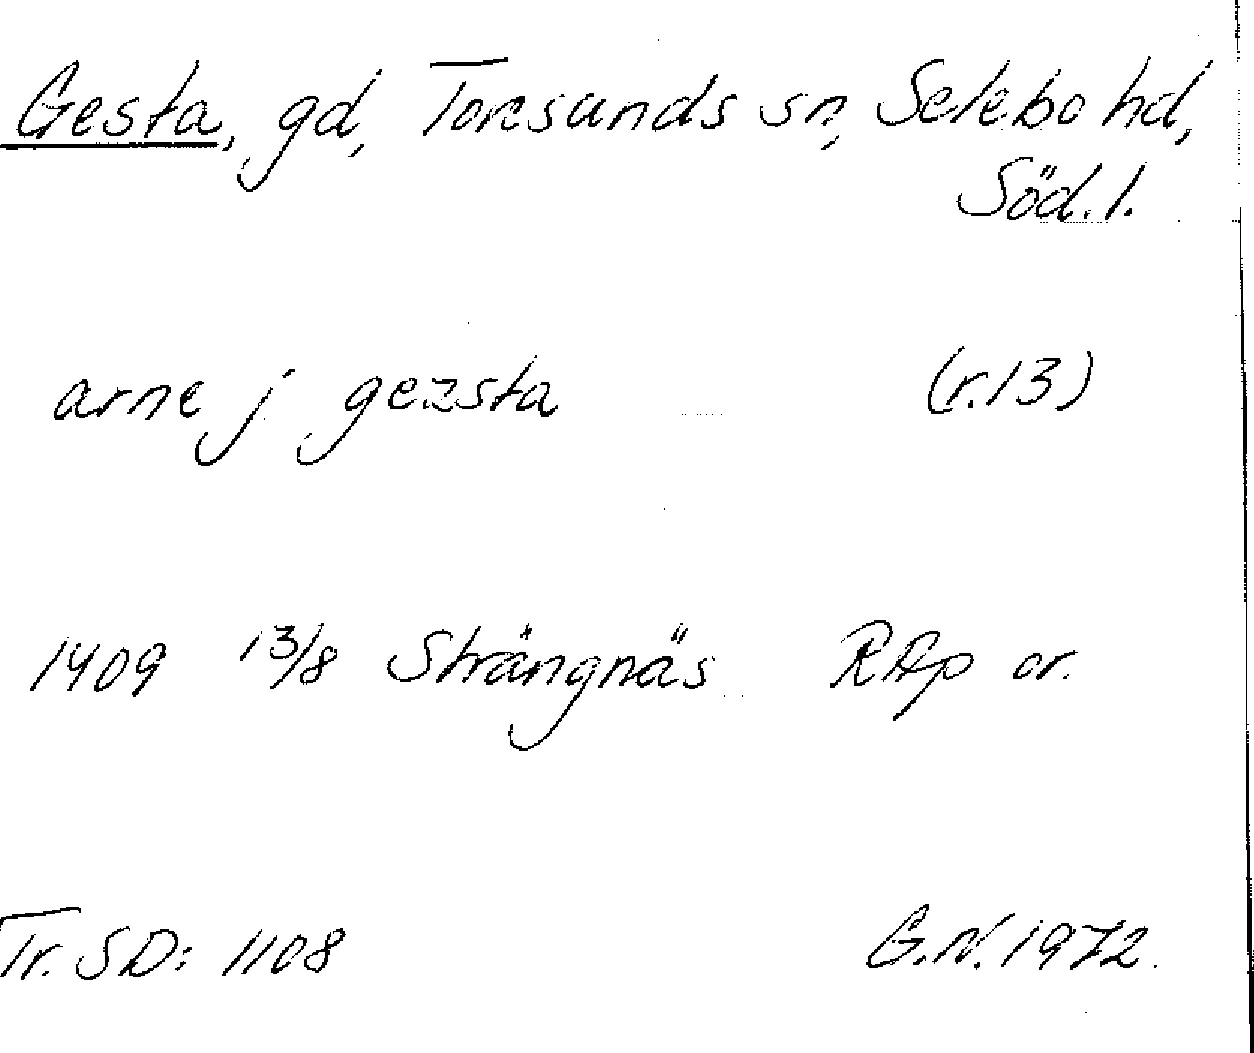 Gesta, gd, Toresunds sn, Selebo hd,
Söd.l.
arne j gezsta (r.13)
1409 13/8 Strängnäs RAp or.
Tr. SD: 1108 G.N. 1972.